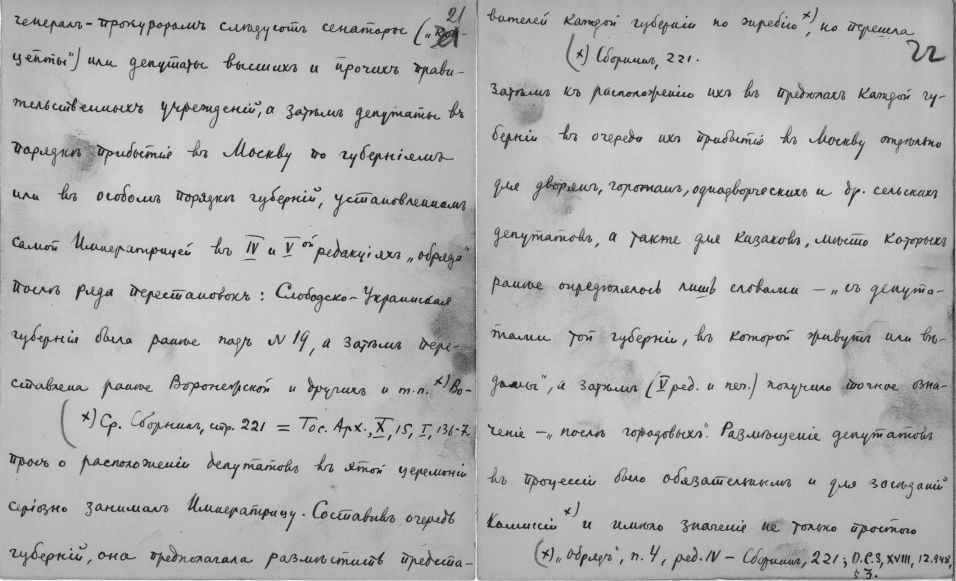 21
генералъ-прокуроромъ слѣдуютъ сенаторы („Кон-
цепты“) или депутаты высшихъ и прочихъ прави-
тельственныхъ учрежденій, а затѣмъ депутаты въ
порядкѣ прибытія въ Москву по губерніямъ
или въ особомъ порядкѣ губерній, установленномъ
самой Императрицей въ IV и V ой редакціяхъ „обряда“
послѣ ряда перестановокъ: Слободско-Украинская
губернія была ранѣе подъ N 19, а затѣмъ пере-
ставлена ранѣе Воронежской и другихъ и т.п. х) Во-
(х) Ср. Сборникъ, стр. 221 = Гос. Арх., X, 15, I, 136-7.
просъ о расположеніи депутатовъ въ этой церемоніи
серіозно занималъ Императрицу. Составивъ очередь
губерній, она предполагала размѣстить предста-
22
вителей каждой губерніи по жребію х), но перешла
(х) Сборникъ, 221.
затѣмъ къ расположенію ихъ въ предѣлахъ каждой гу-
берніи въ очереди ихъ прибытія въ Москву отдѣльно
для дворянъ, горожанъ, однодворческихъ и др. сельскихъ
депутатовъ, а также для казаковъ, мѣсто которыхъ
ранѣе опредѣлялось лишь словами – „съ депута-
тами той губерніи, въ которой живутъ или вѣ-
домы“, а затѣмъ (V ред. и печ.) получило точное озна-
ченіе – „послѣ городовыхъ“. Размѣщеніе депутатовъ
въ процессіи было обязательнымъ и для засѣданій
Коммисіи х) и имѣло значеніе не только простого
(х) „Обрядъ“, п. 4, ред. IV – Сборникъ, 221; П.С.З, XVIII, 12.948,
§ 3.